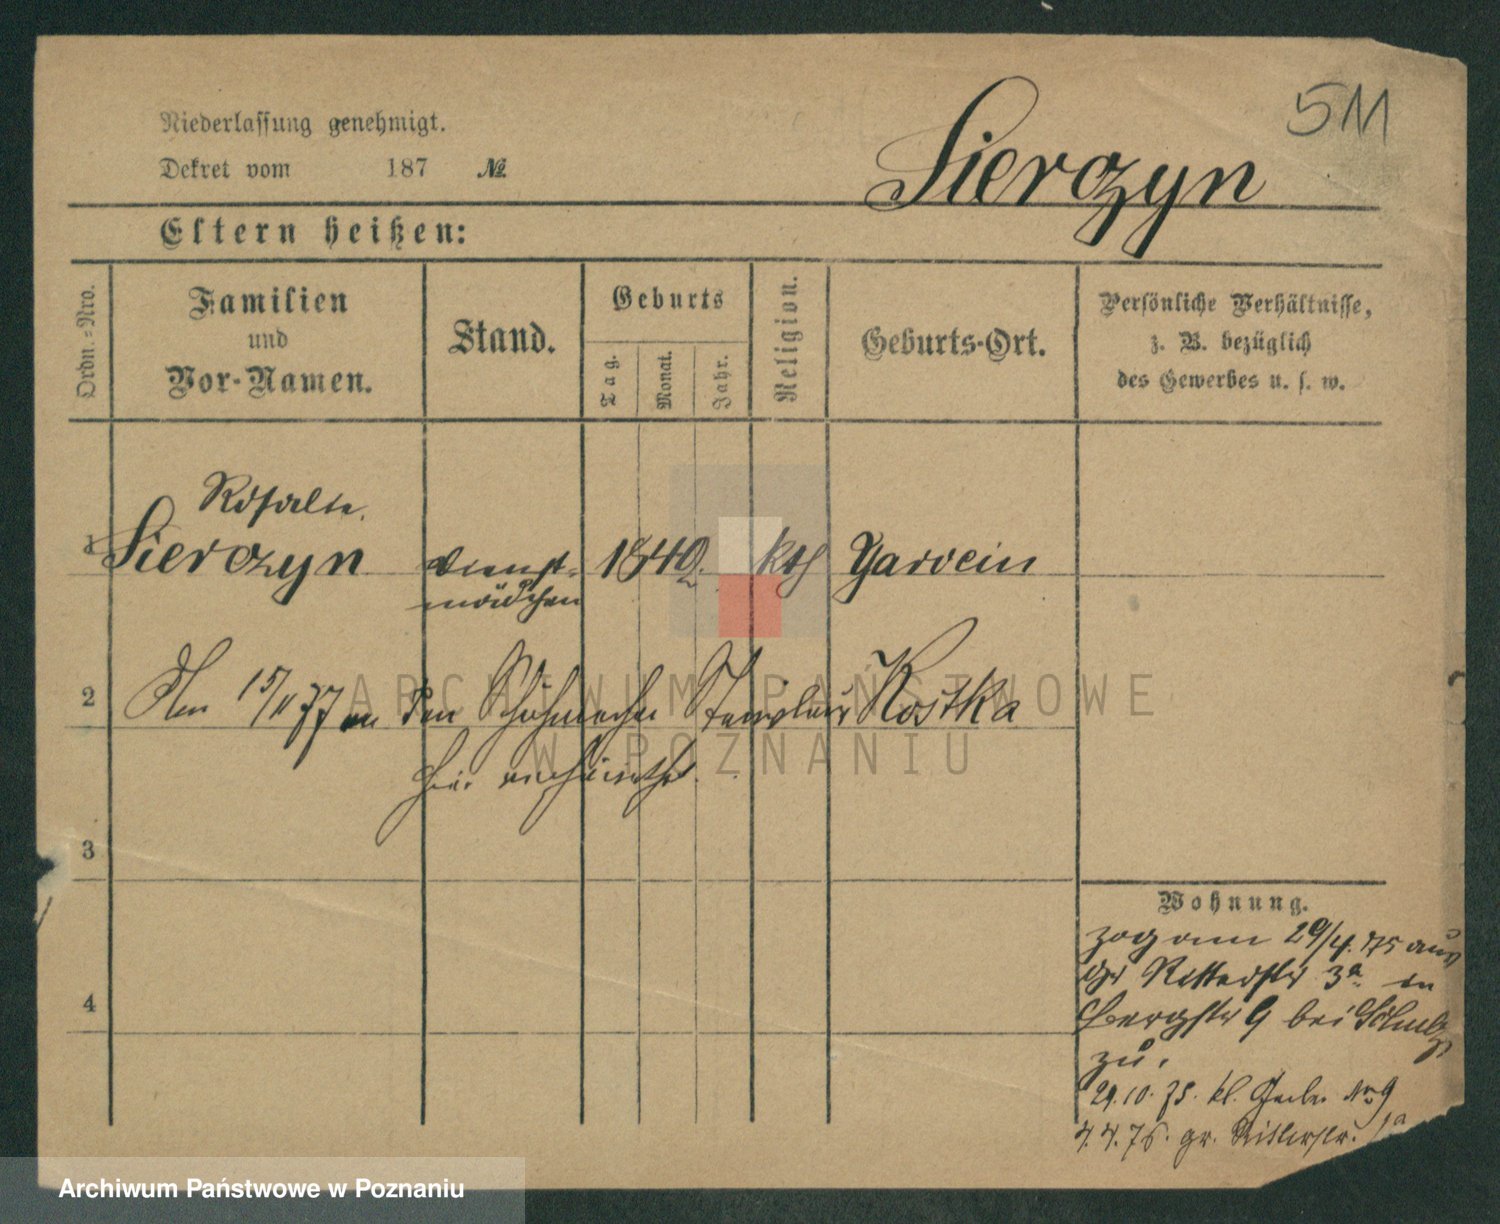 511
Niederlassung genehmigt.
Dekret vom 187 №
Sierczyn
Eltern heißen:
Ordn.=Nro.
Familien
und
Vor-Namen.
Stand.
Geburts
Tag.
Monat.
Jahr.
Religion.
Geburts-Ort.
Persönliche Verhältnisse,
z. B. bezüglich
des Gewerbes u. s. w.
Rosalie
1 Sierczyn Dienst= 1840. kth
mädchen
2 Am 15/11 77 an den Schuhmacher Kostka
hier verheirathet.
ARCHIWUM PAŃSTWOWE
W POZNANIU
3
4
Wohnung.
zog am 29/4. 75 aus
der Ritterstr 3a in
Bergstr 9 bei
zu.
29.10.75. kl. Nr 9
4.4.76. gr. Ritterstr. 1a
Archiwum Państwowe w Poznaniu